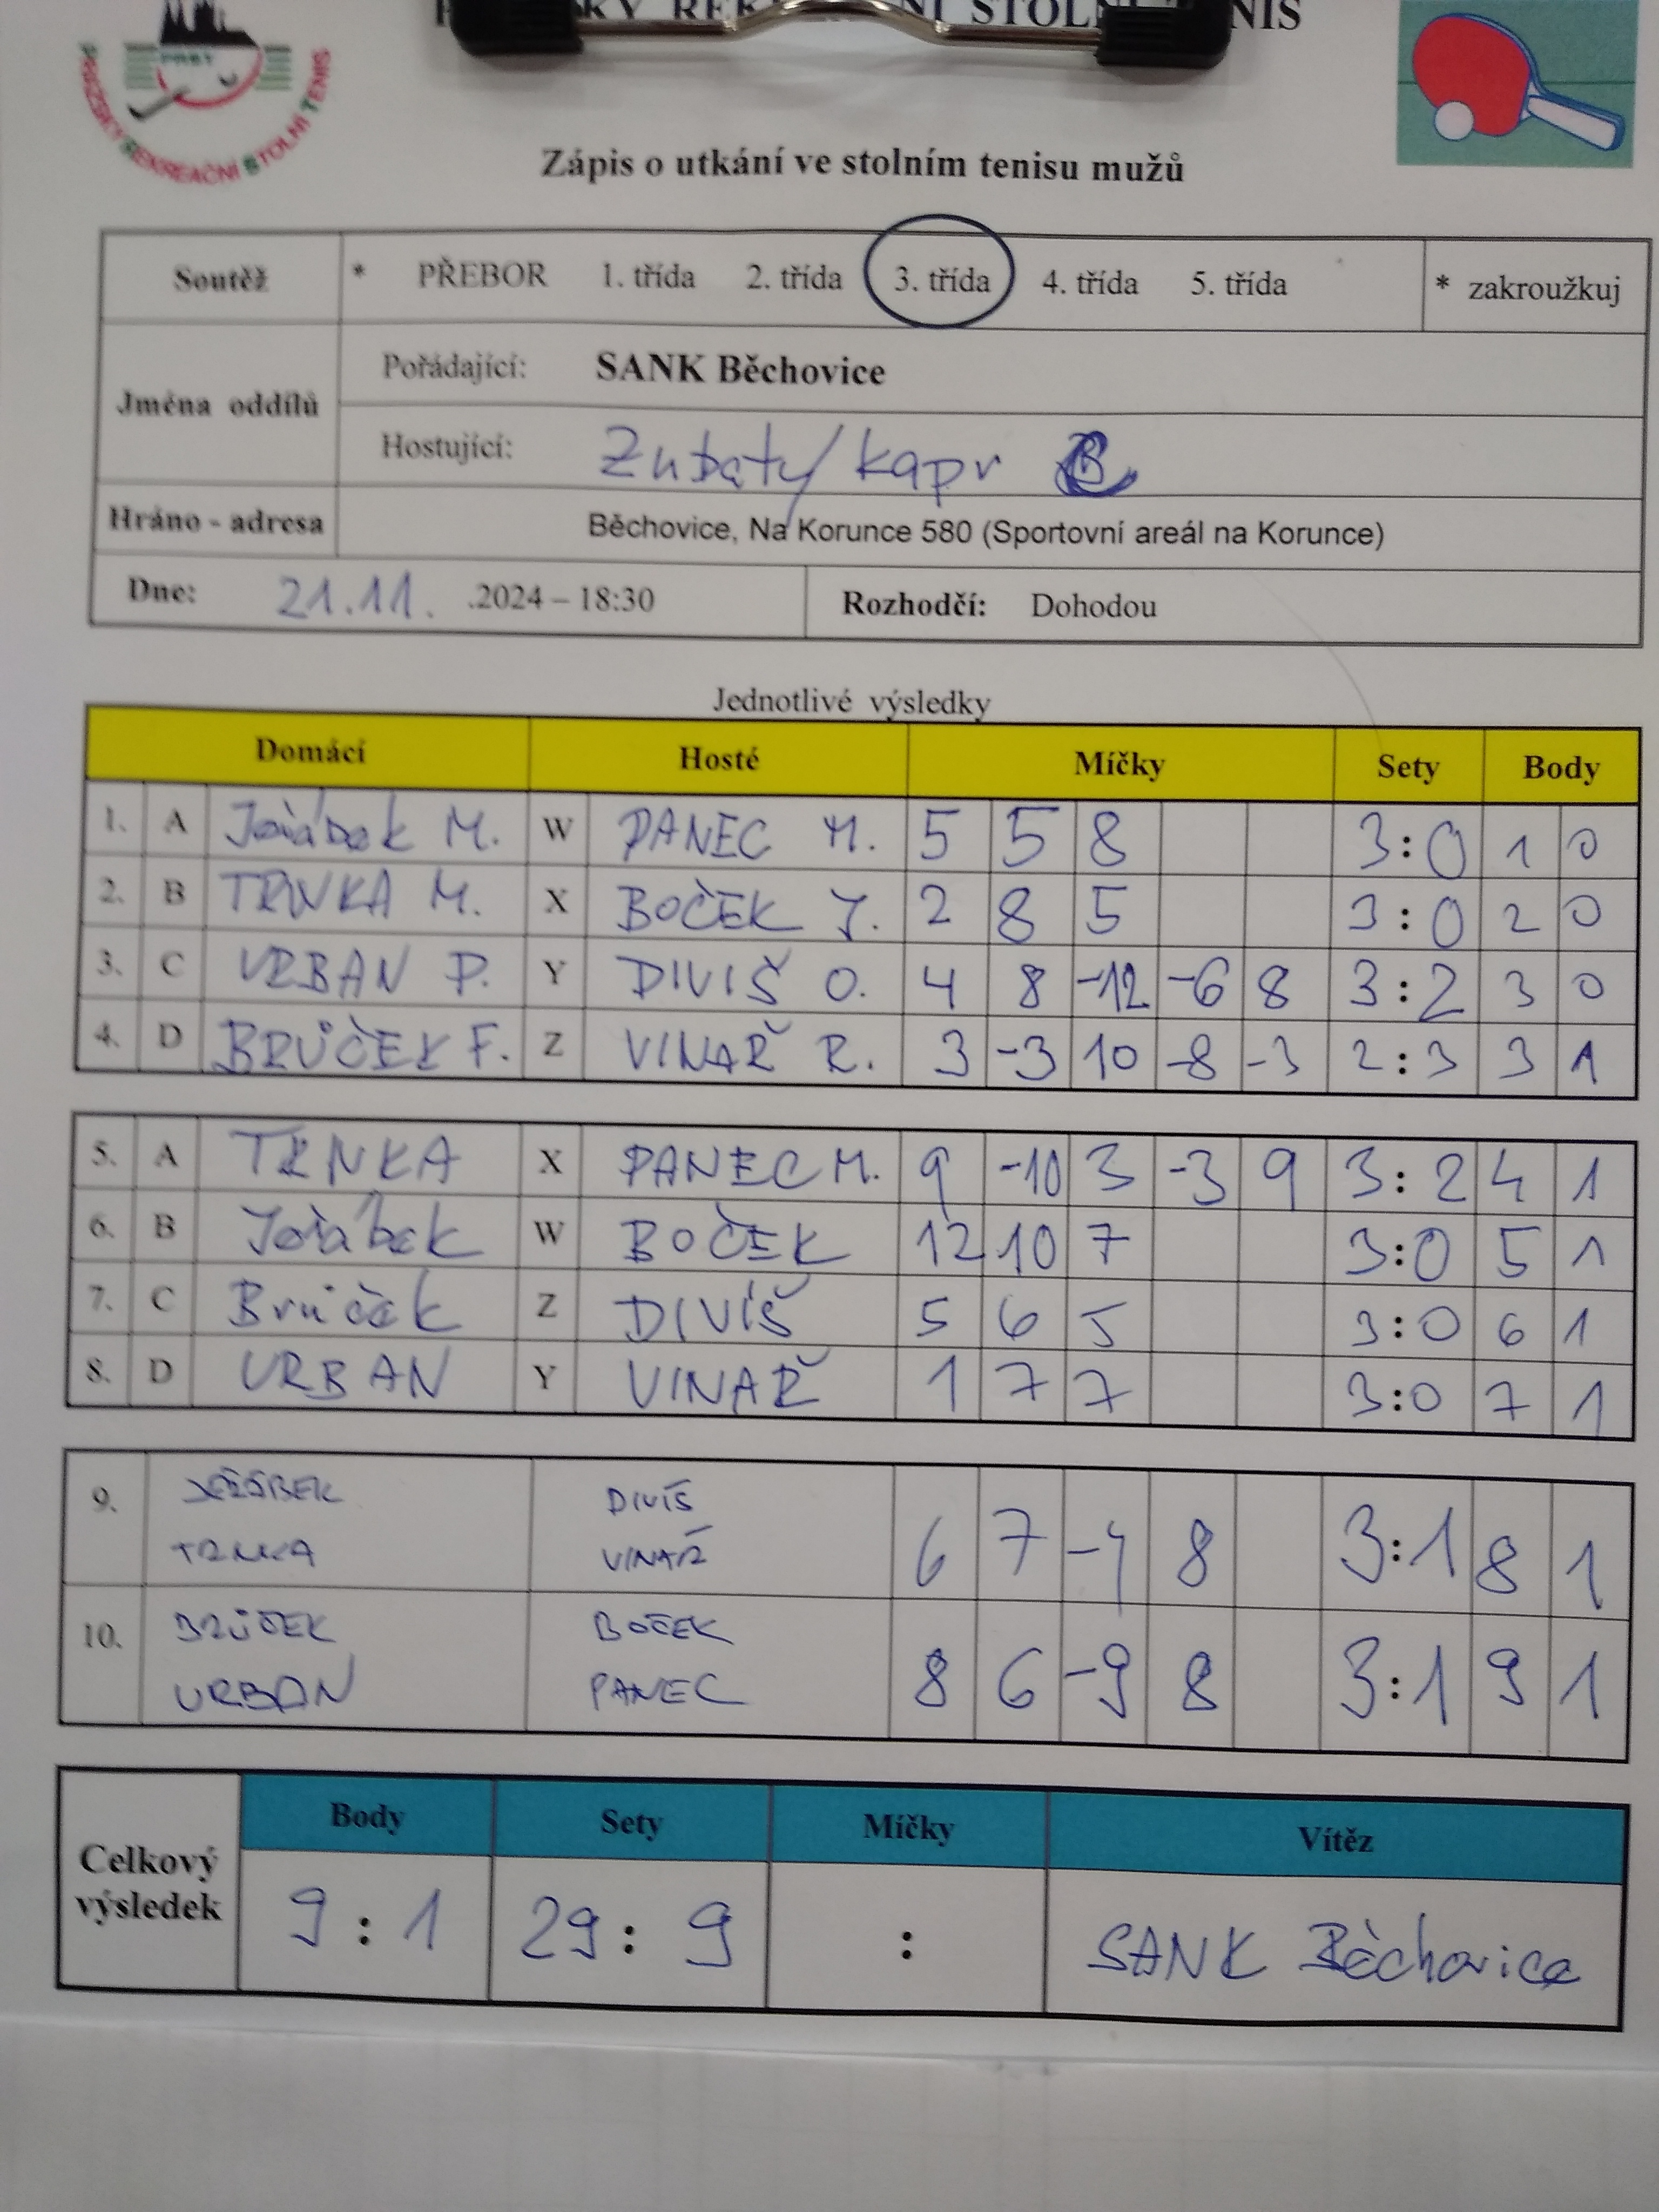 STOLNÍ TENIS
PRST
PRAŽSKÝ REKREAČNÍ STOLNÍ TENIS
Zápis o utkání ve stolním tenisu mužů
Soutěž * PŘEBOR 1. třída 2. třída 3. třída 4. třída 5. třída * zakroužkuj
Jména oddílů
Pořádající: SANK Běchovice
Hostující: Zubatý/kapr B
Hráno - adresa Běchovice, Na Korunce 580 (Sportovní areál na Korunce)
Dne: 21.11. .2024 – 18:30 Rozhodčí: Dohodou
Jednotlivé výsledky
Domácí Hosté Míčky Sety Body
1. A Jeřábek M. W PANEC M. 5 5 8 3:0 1 0
2. B TRNKA M. X BOČEK J. 2 8 5 3:0 2 0
3. C URBAN P. Y DIVIŠ O. 4 8 -12 -6 8 3:2 3 0
4. D BRŮČEK F. Z VINAŘ R. 3 -3 10 -8 -3 2:3 3 1
5. A TRNKA X PANEC M. 9 -10 3 -3 9 3:2 4 1
6. B Jeřábek W BOČEK 12 10 7 3:0 5 1
7. C Brůček Z DIVIŠ 5 6 5 3:0 6 1
8. D URBAN Y VINAŘ 1 7 7 3:0 7 1
9. JEŘÁBEK DIVIŠ 6 7 8 3:1 8 1
TRNKA VINAŘ
10. BRŮČEK BOČEK 8 6 -9 8 3:1 9 1
URBAN PANEC
Celkový výsledek
Body Sety Míčky Vítěz
9:1 29:9 : SANK Běchovice